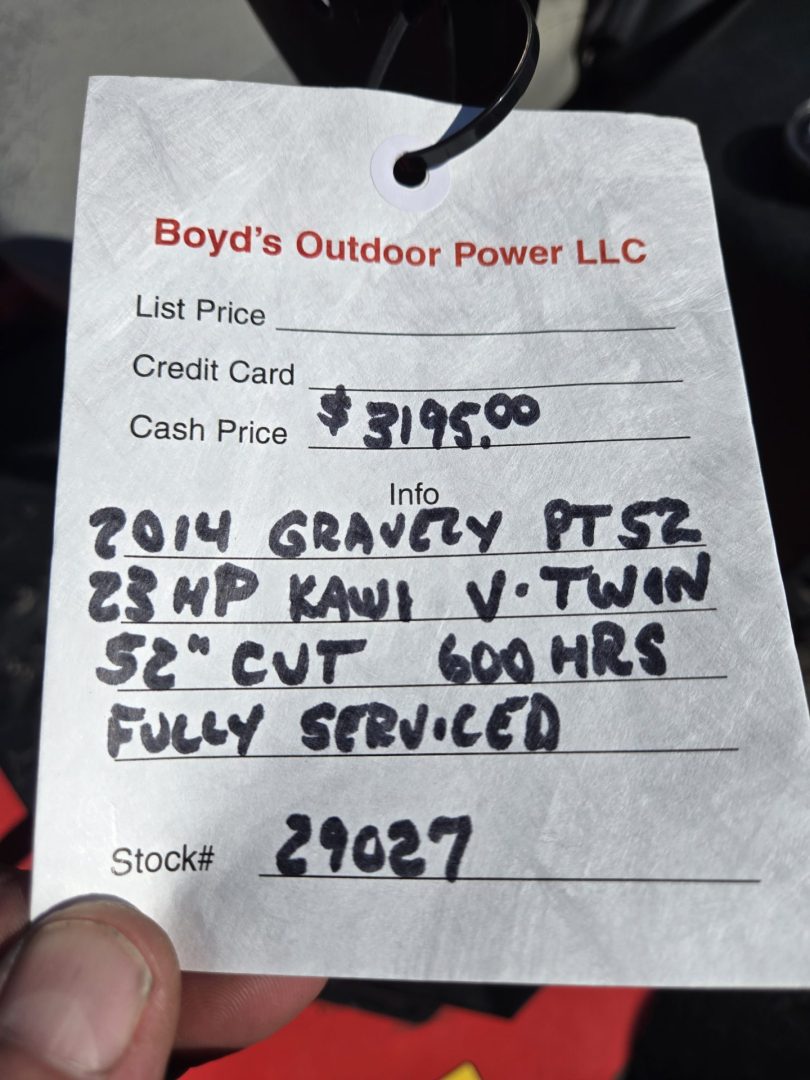 Boyd's Outdoor Power LLC
List Price
Credit Card
Cash Price $3195.00
Info
2014 GRAVELY PT52
23 HP KAWI V-TWIN
52" CUT 600 HRS
FULLY SERVICED
Stock# 29027